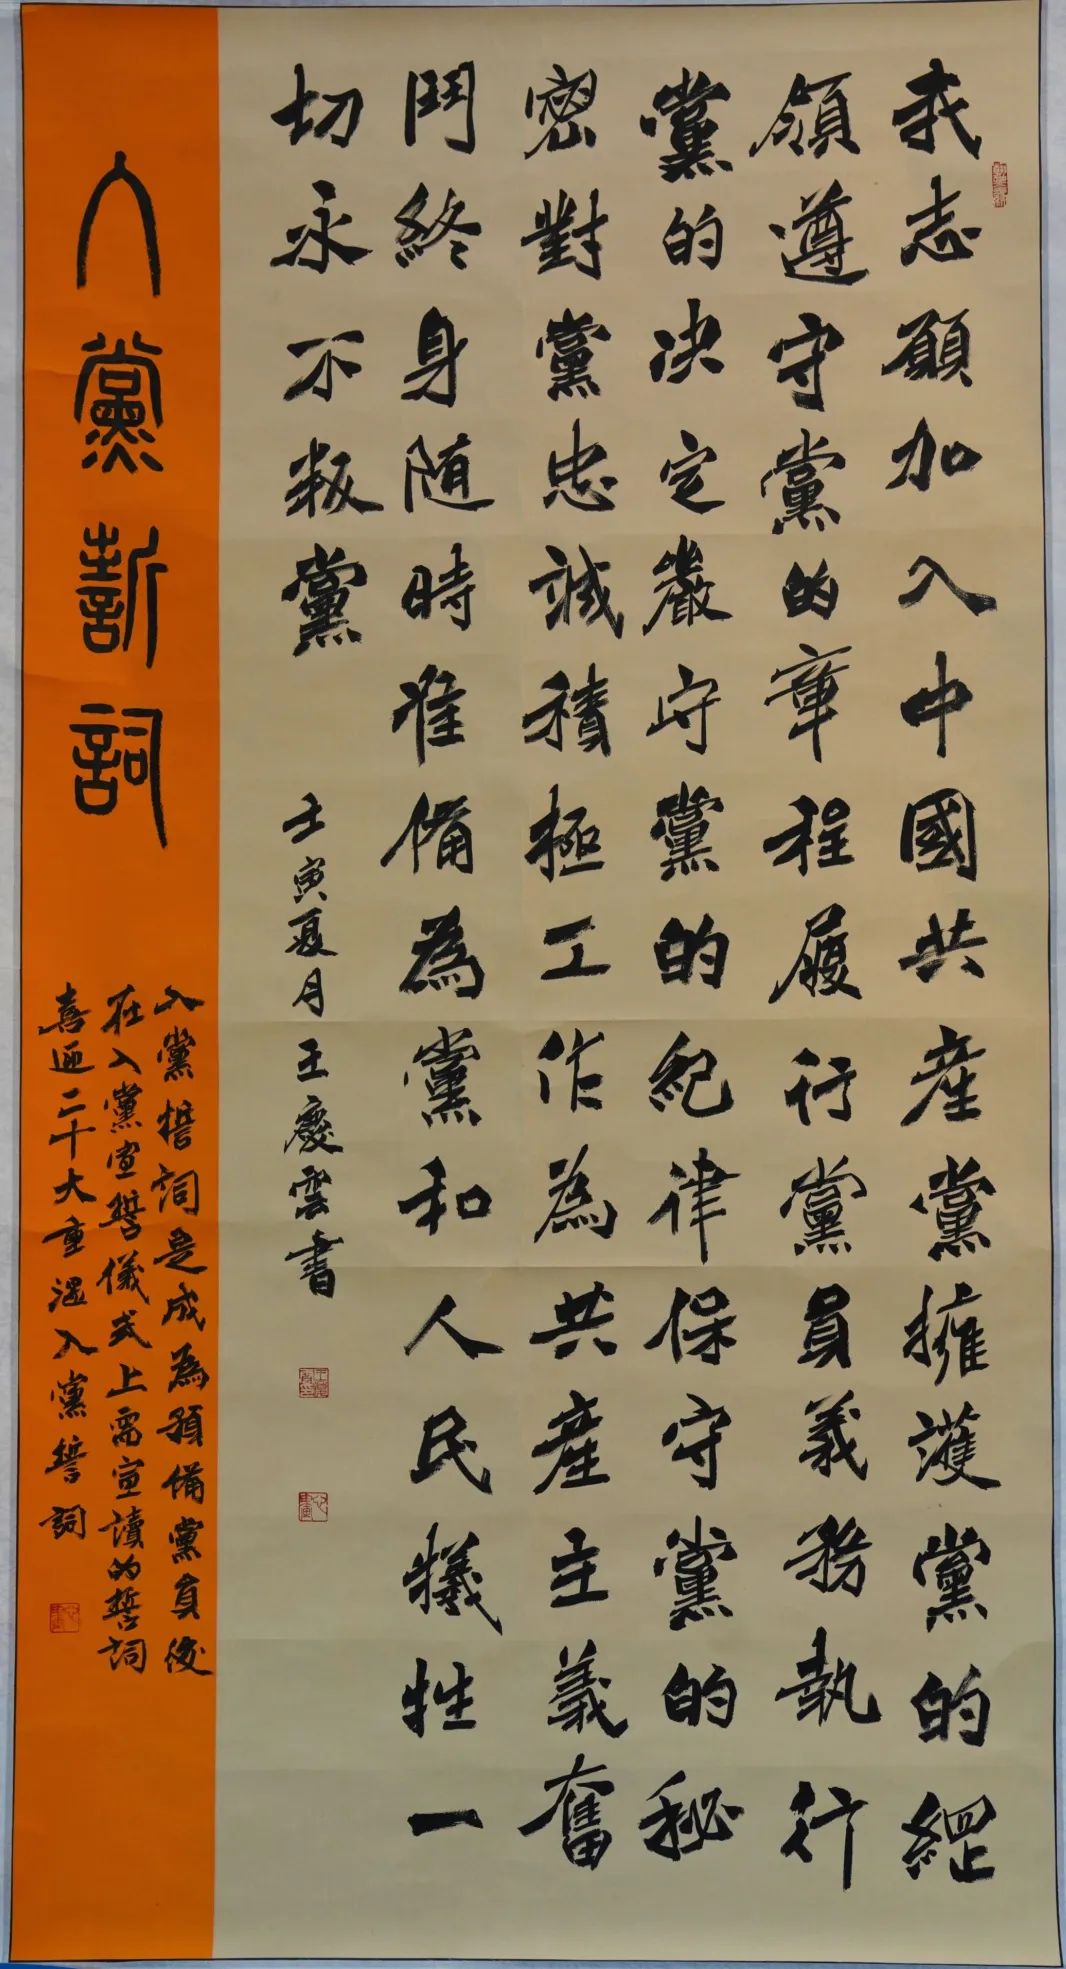 我志願加入中國共産黨擁護黨的綱
領遵守黨的章程履行黨員義務執行
黨的决定嚴守黨的紀律保守黨的秘
密對黨忠誠積極工作為共産主義奮
鬥終身随時准備為黨和人民犧牲一
切永不叛黨
壬寅夏月王慶雲書
入黨誓詞
入黨誓詞是成為預備黨員後
在入黨宣誓儀式上需宣讀的誓詞
喜迎二十大重温入黨誓詞